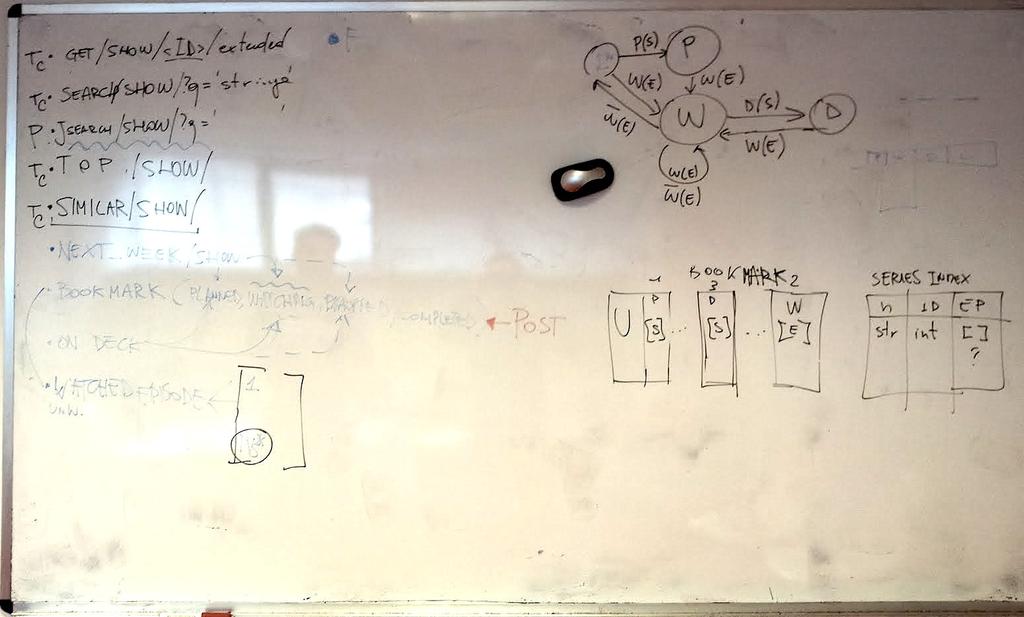 Tc • GET/SHOW/<ID>/extended
Tc • SEARCH/SHOW/?q='stringa'
P • JSEARCH/SHOW/?q=' '
Tc • TOP /SHOW/
Tc • SIMILAR/SHOW/
• NEXT_WEEK/SHOW
• BOOKMARK (PLANNED, WATCHING, DROPPED, COMPLETED ← POST
• ON DECK
• WATCHED EPISODE
UNW.
1.
• F
P(S)
P
W(E)
W(E)
W̅(E)
W
D(S)
D
W(E)
W(E)
W̅(E)
BOOKMARK
1 3 2
U P D W
[S] ... [S] ... [E]
SERIES INDEX
n ID EP
str int []
?